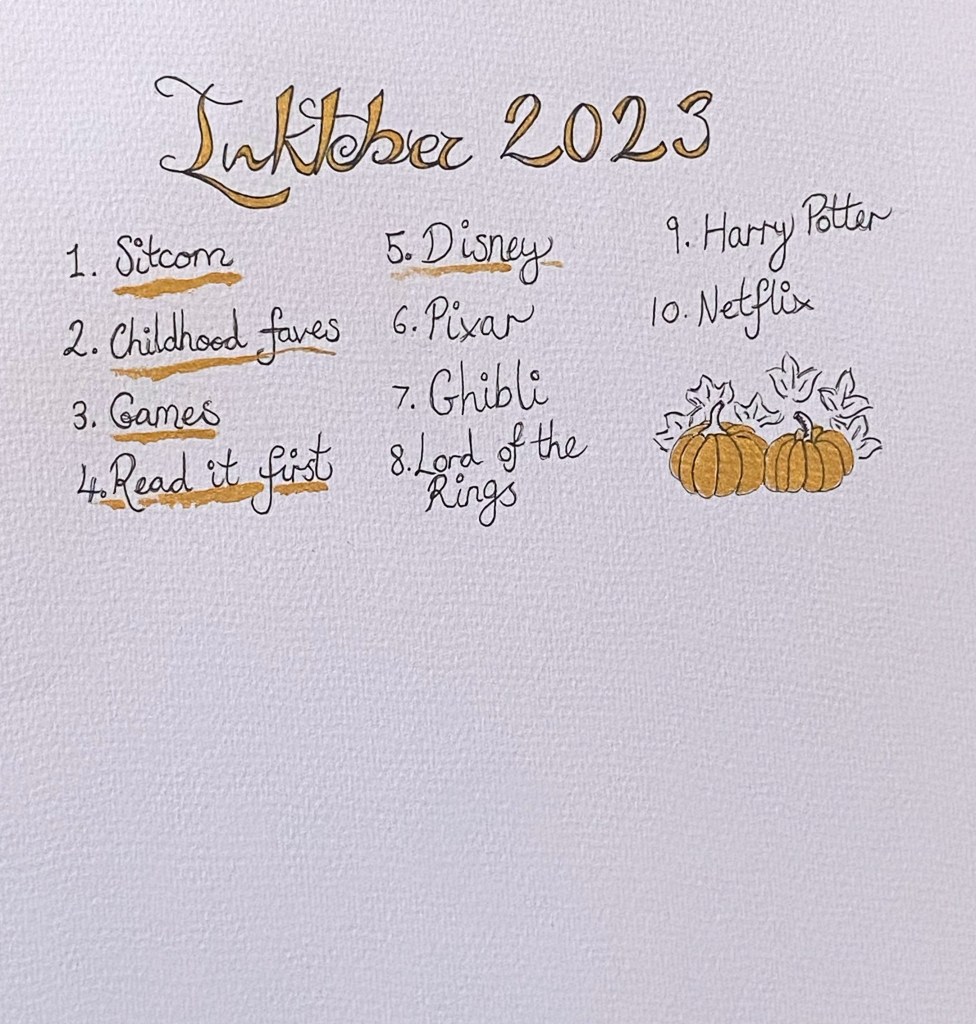 Inktober 2023
1. Sitcom
2. Childhood faves
3. Games
4. Read it first
5. Disney
6. Pixar
7. Ghibli
8. Lord of the
Rings
9. Harry Potter
10. Netflix